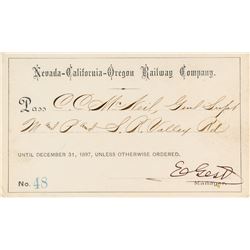 Nevada-California-Oregon Railway Company.
Pass C. C. McNeil, Genl Supt
S. P. Valley Rd
UNTIL DECEMBER 31, 1897, UNLESS OTHERWISE ORDERED.
E Gest
Manager.
No. 48